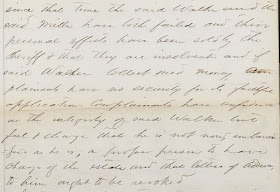 since that time the said Walker and the
said Mills have both failed and their
personal effects have been sold by the
Sheriff & that they are insolvent and if
said Walker collect said money
plainants have no security for its
application. Complainants have confidence
in the integrity of said Walker but
fact & charge that he is not
as he is, a proper person to have
charge of the estate and that letters of
to him ought to be revoked